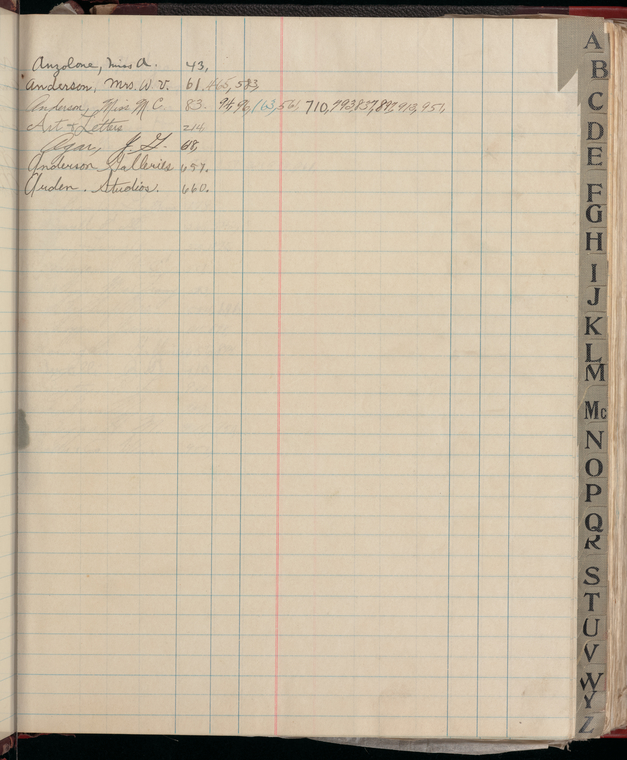 Anzolone, Miss A. 43,
Anderson, Mrs. W. V. 61, 445, 583,
Anderson, Miss M C. 83. 94, 96, 163, 561 710, 793, 857, 892, 913, 951,
Art & Letters 214
Agar, J. G. 68,
Anderson Galleries 657.
Arden. Studios. 660.
A
B
C
D
E
F
G
H
I
J
K
L
M
Mc
N
O
P
Q
R
S
T
U
V
W
Y
Z